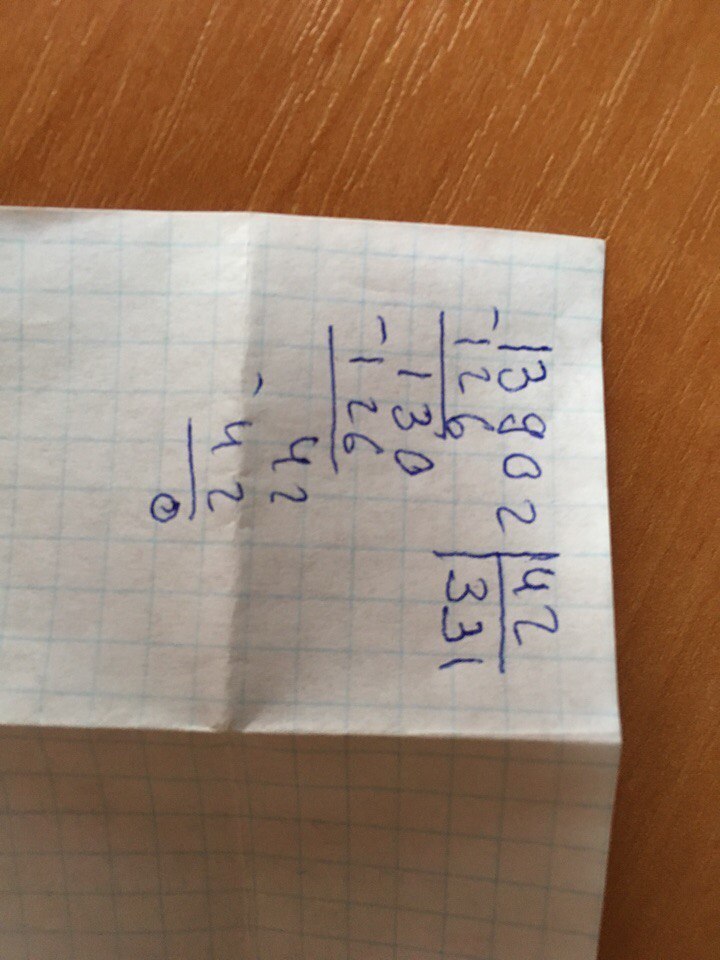 -13902 |42
-126 |331
-130
-126
-42
42
0